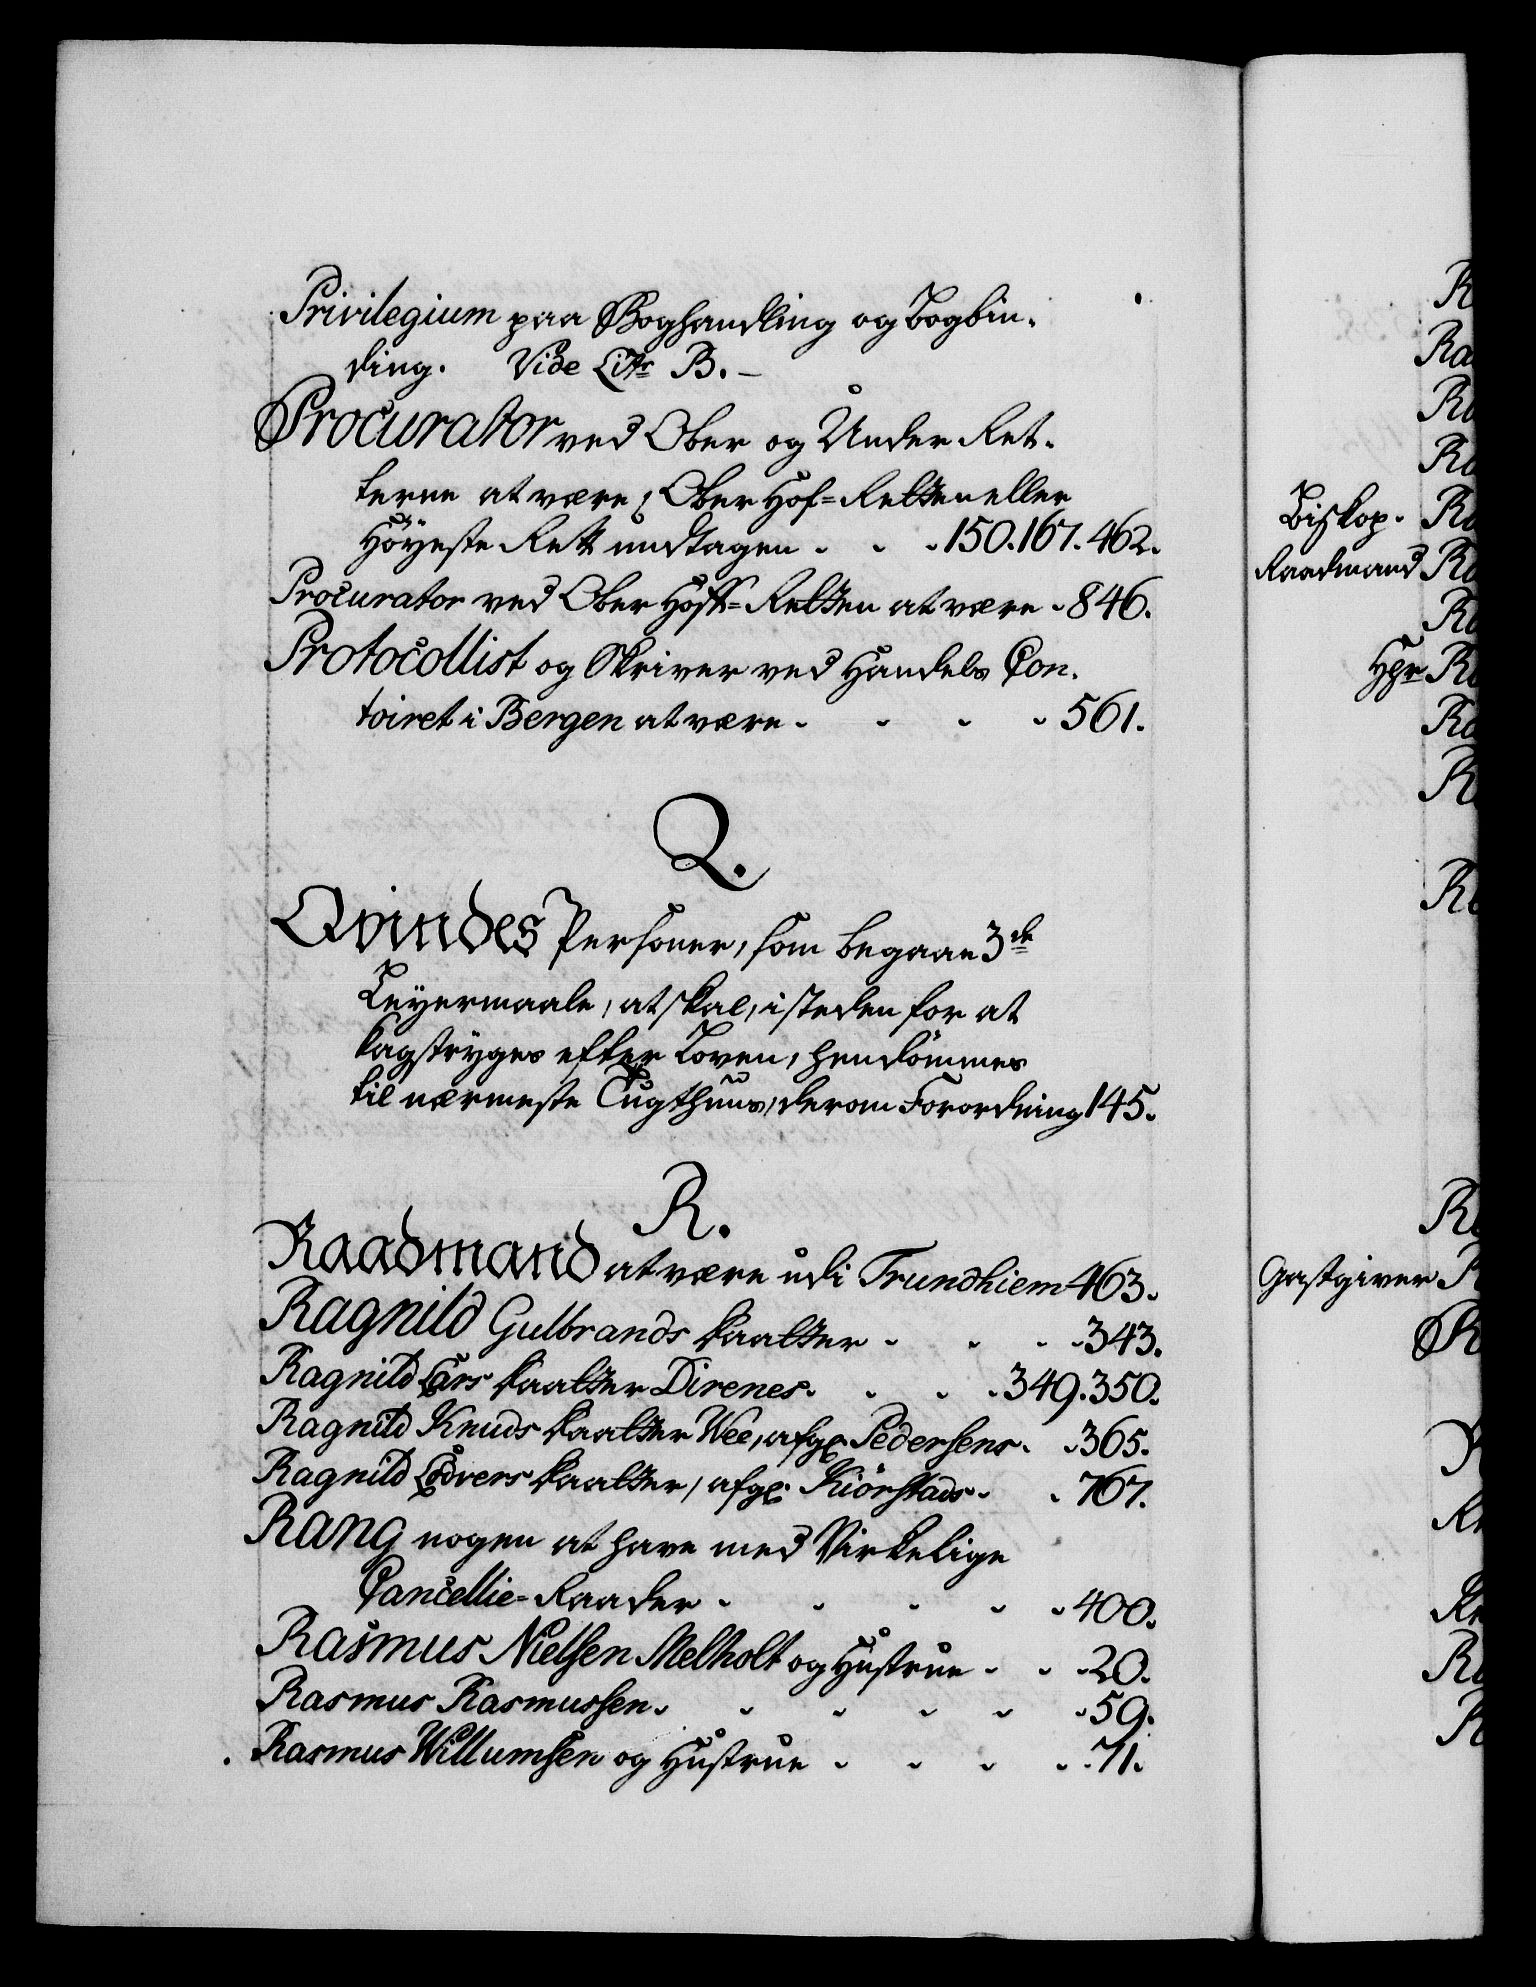 Privilegium paa Boghandling og Bogbin-
ding. Vide Litr B. –
Procurator ved Ober og Under Ret-
terne at være, Ober Hof=Retten eller
Høyeste Rett undtagen - - - 150. 167. 462.
Procurator ved Ober Hoff=Retten at være - 846.
Protocollist og Skriver ved Handels Con-
toiret i Bergen at være - - - - 561.
Q.
Qvindes Personer, som begaae 3de
Leyermaale, at skal, i steden for at
kagstryges efter Loven, hendømmes
til nærmeste Tugthuus, derom Forordning 145.
R.
Raadmand at være udi Trundhiem 463.
Ragnild Gulbrands Daatter - - - - 343.
Ragnild Lars Daatter Direnes. - - - 349. 350.
Ragnild Knuds Daatter Wee, afgl Pedersens - - 365.
Ragnild Lodvers Daatter, afgl. Kiörstads - - 767.
Rang nogen at have med Virkelige
Cancellie=Raader - - - - - 400.
Rasmus Nielsen Melholt og Hustrue - - - 20.
Rasmus Rasmussen. - - - - - 59.
Rasmus Willumsen og Hustrue - - - - - 71.
R
Ra
Ra
Ra
Biskop. Ra
Raadmand Ra
Ra
Hr Ra
Ra
R
Re
Re
Gastgiver R
R
R
Re
R